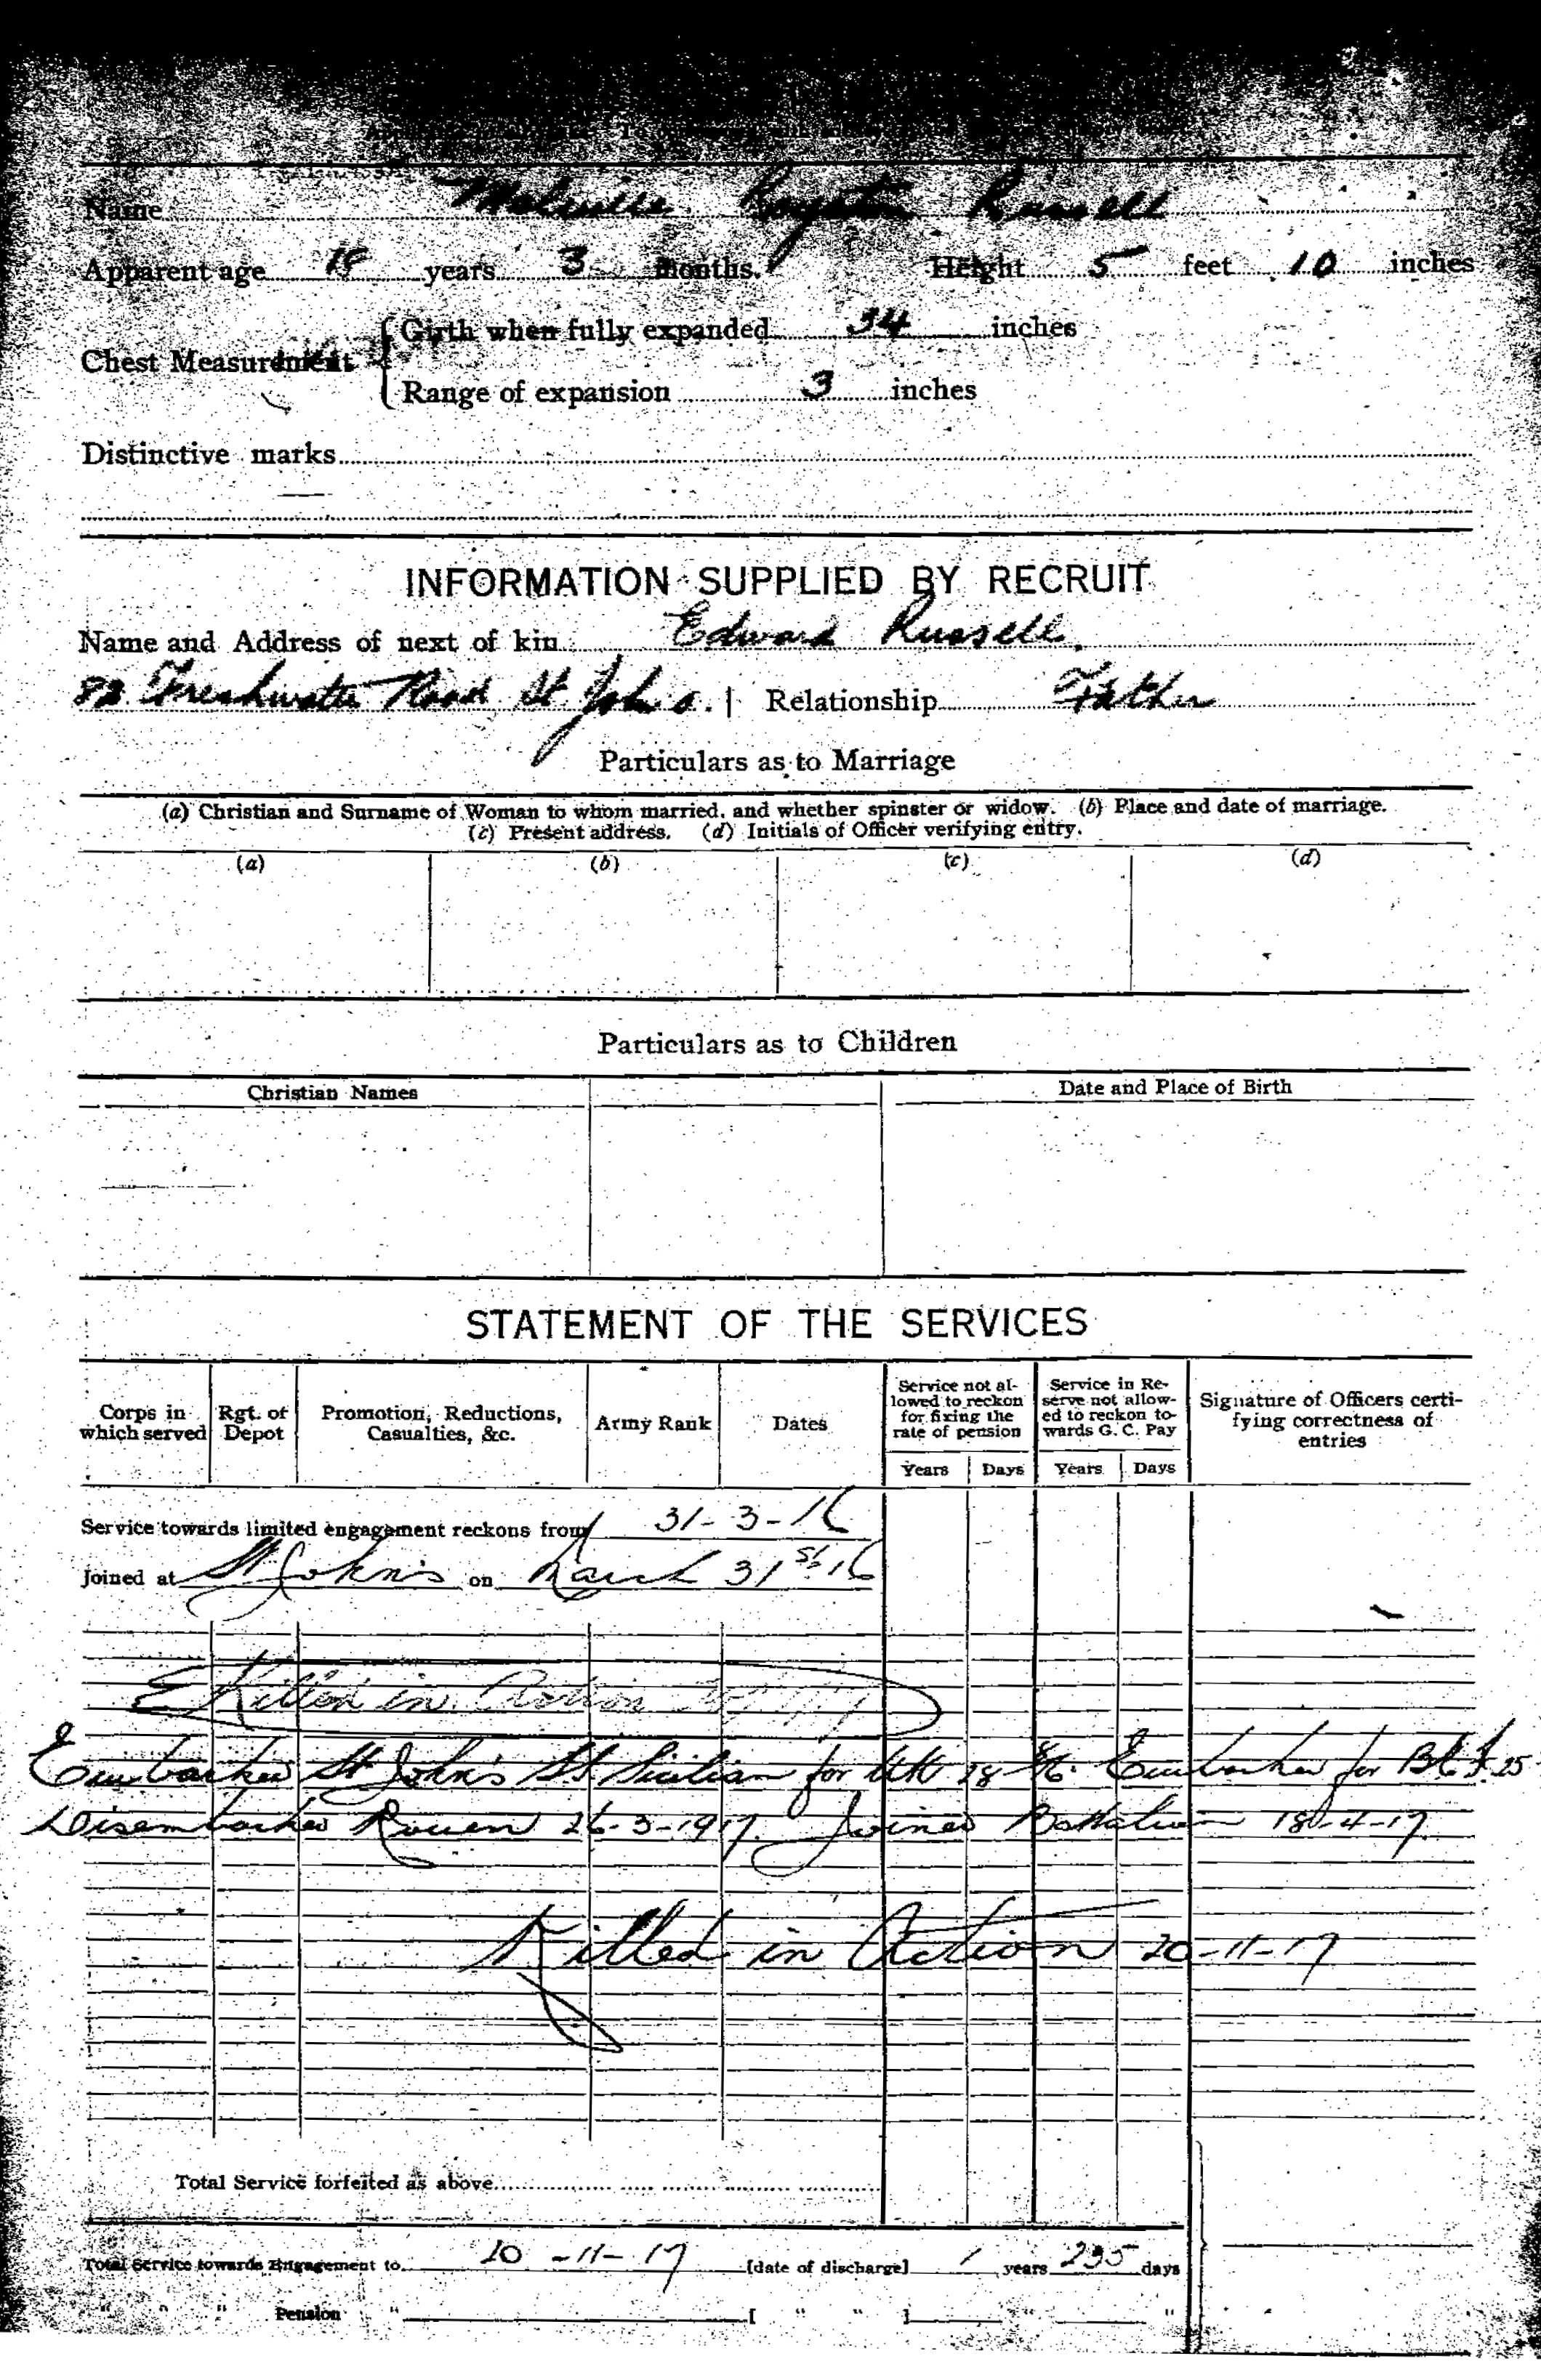 Name Melville Royston Russell
Apparent age years 3 months. Height 5 feet 10 inches
Chest Measurement { Girth when fully expanded 34 inches
Range of expansion 3 inches
Distinctive marks
INFORMATION SUPPLIED BY RECRUIT
Name and Address of next of kin Edward Russell,
82 Freshwater Road St. John's. | Relationship Father
Particulars as to Marriage
(a) Christian and Surname of Woman to whom married, and whether spinster or widow. (b) Place and date of marriage.
(c) Present address. (d) Initials of Officer verifying entry.
(a) (b) (c) (d)
Particulars as to Children
Christian Names Date and Place of Birth
STATEMENT OF THE SERVICES
Corps in which served Rgt. or Depot Promotion, Reductions, Casualties, &c. Army Rank Dates Service not allowed to reckon for fixing the rate of pension Service in Reserve not allowed to reckon towards G. C. Pay Signature of Officers certifying correctness of entries
Years Days Years Days
Service towards limited engagement reckons from 31-3-16
Joined at St John's on March 31st 16
Killed in Action
Embarked St John's SS Sicilian for UK 28 Embarked for B.E.F. 25
Disembarked Rouen 26-3-1917. Joined Battalion 18-4-17.
Killed in Action 20-11-17
Total Service forfeited as above
Total Service towards Engagement to 20-11-17 [date of discharge] 1 years 235 days
" " " Pension " [ " " ] " "